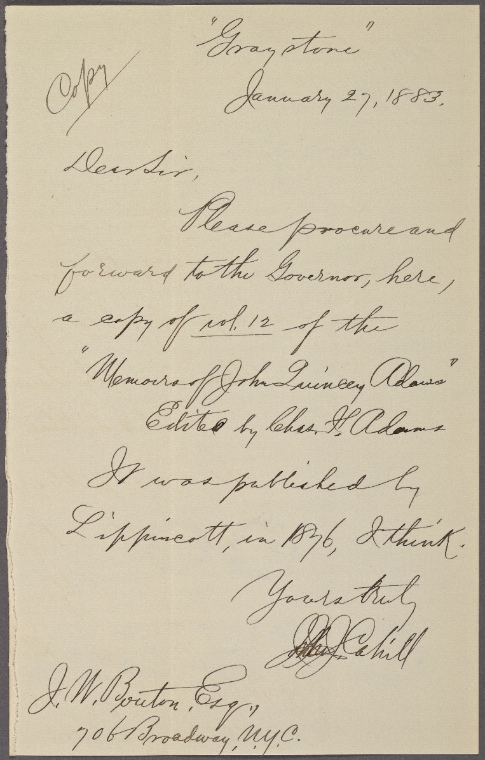 "Graystone"
Copy
January 27, 1883.
Dear Sir,
Please procure and
forward to the Governor, here,
a copy of vol. 12 of the
"Memoirs of John Quincey Adams"
Edited by Chas. F. Adams
It was published by
Lippincott, in 1876, I think.
Yours truly
Cahill
J. W. Bouton, Esq.,
706 Broadway, N.Y.C.